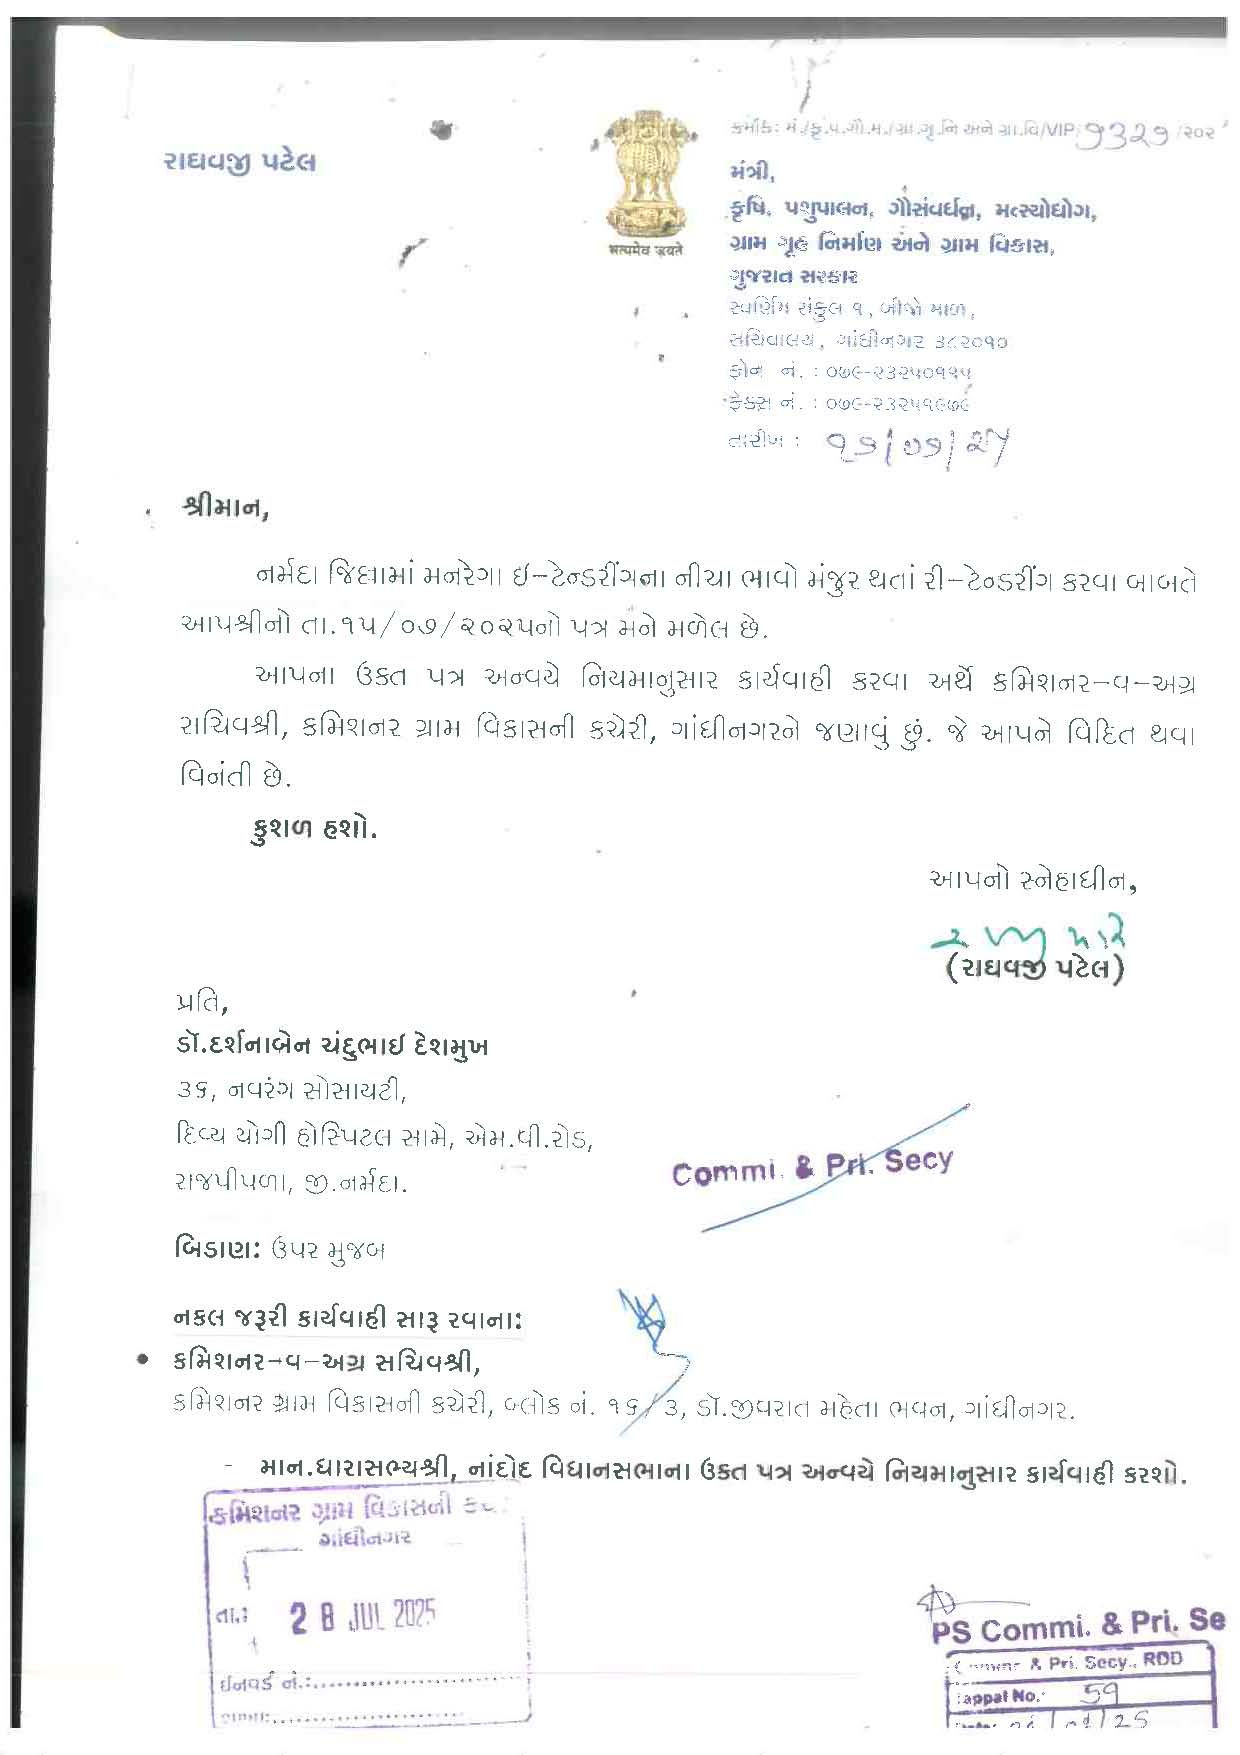 રાઘવજી પટેલ
सत्यमेव जयते
ક્રમાંક: મં./કૃ.પ.ગૌ.મ./ગ્રા.ગૃ.નિ અને ગ્રા.વિ/VIP/૧૩૨૧/૨૦૨
મંત્રી,
કૃષિ, પશુપાલન, ગૌસંવર્ધન, મત્સ્યોદ્યોગ,
ગ્રામ ગૃહ નિર્માણ અને ગ્રામ વિકાસ,
ગુજરાત સરકાર
સ્વર્ણિમ સંકુલ ૧, બીજો માળ,
સચિવાલય, ગાંધીનગર ૩૮૨૦૧૦
ફોન નં. : ૦૭૯-૨૩૨૫૦૧૧૫
ફેક્સ નં. : ૦૭૯-૨૩૨૫૧૯૭૯
તારીખ :
શ્રીમાન,
નર્મદા જિલ્લામાં મનરેગા ઇ-ટેન્ડરીંગના નીચા ભાવો મંજુર થતાં રી-ટેન્ડરીંગ કરવા બાબતે
આપશ્રીનો તા.૧૫/૦૭/૨૦૨૫નો પત્ર મને મળેલ છે.
આપના ઉક્ત પત્ર અન્વયે નિયમાનુસાર કાર્યવાહી કરવા અર્થે કમિશનર-વ-અગ્ર
સચિવશ્રી, કમિશનર ગ્રામ વિકાસની કચેરી, ગાંધીનગરને જણાવું છું. જે આપને વિદિત થવા
વિનંતી છે.
કુશળ હશો.
આપનો સ્નેહાધીન,
(રાઘવજી પટેલ)
પ્રતિ,
ડૉ.દર્શનાબેન ચંદુભાઈ દેશમુખ
૩૬, નવરંગ સોસાયટી,
દિવ્ય યોગી હોસ્પિટલ સામે, એમ.વી.રોડ,
રાજપીપળા, જી.નર્મદા.
Commi. & Pri. Secy
બિડાણ: ઉપર મુજબ
નકલ જરૂરી કાર્યવાહી સારૂ રવાના:
• કમિશનર-વ-અગ્ર સચિવશ્રી,
કમિશનર ગ્રામ વિકાસની કચેરી, બ્લોક નં. ૧૬/૩, ડૉ.જીવરાત મહેતા ભવન, ગાંધીનગર.
- માન.ધારાસભ્યશ્રી, નાંદોદ વિધાનસભાના ઉક્ત પત્ર અન્વયે નિયમાનુસાર કાર્યવાહી કરશો.
કમિશનર ગ્રામ વિકાસની
ગાંધીનગર
તા.: 28 JUL 2025
ઈનવર્ડ નં.:
PS Commi. & Pri. Se
& Pri. Secy., RDD
appal No.: 59